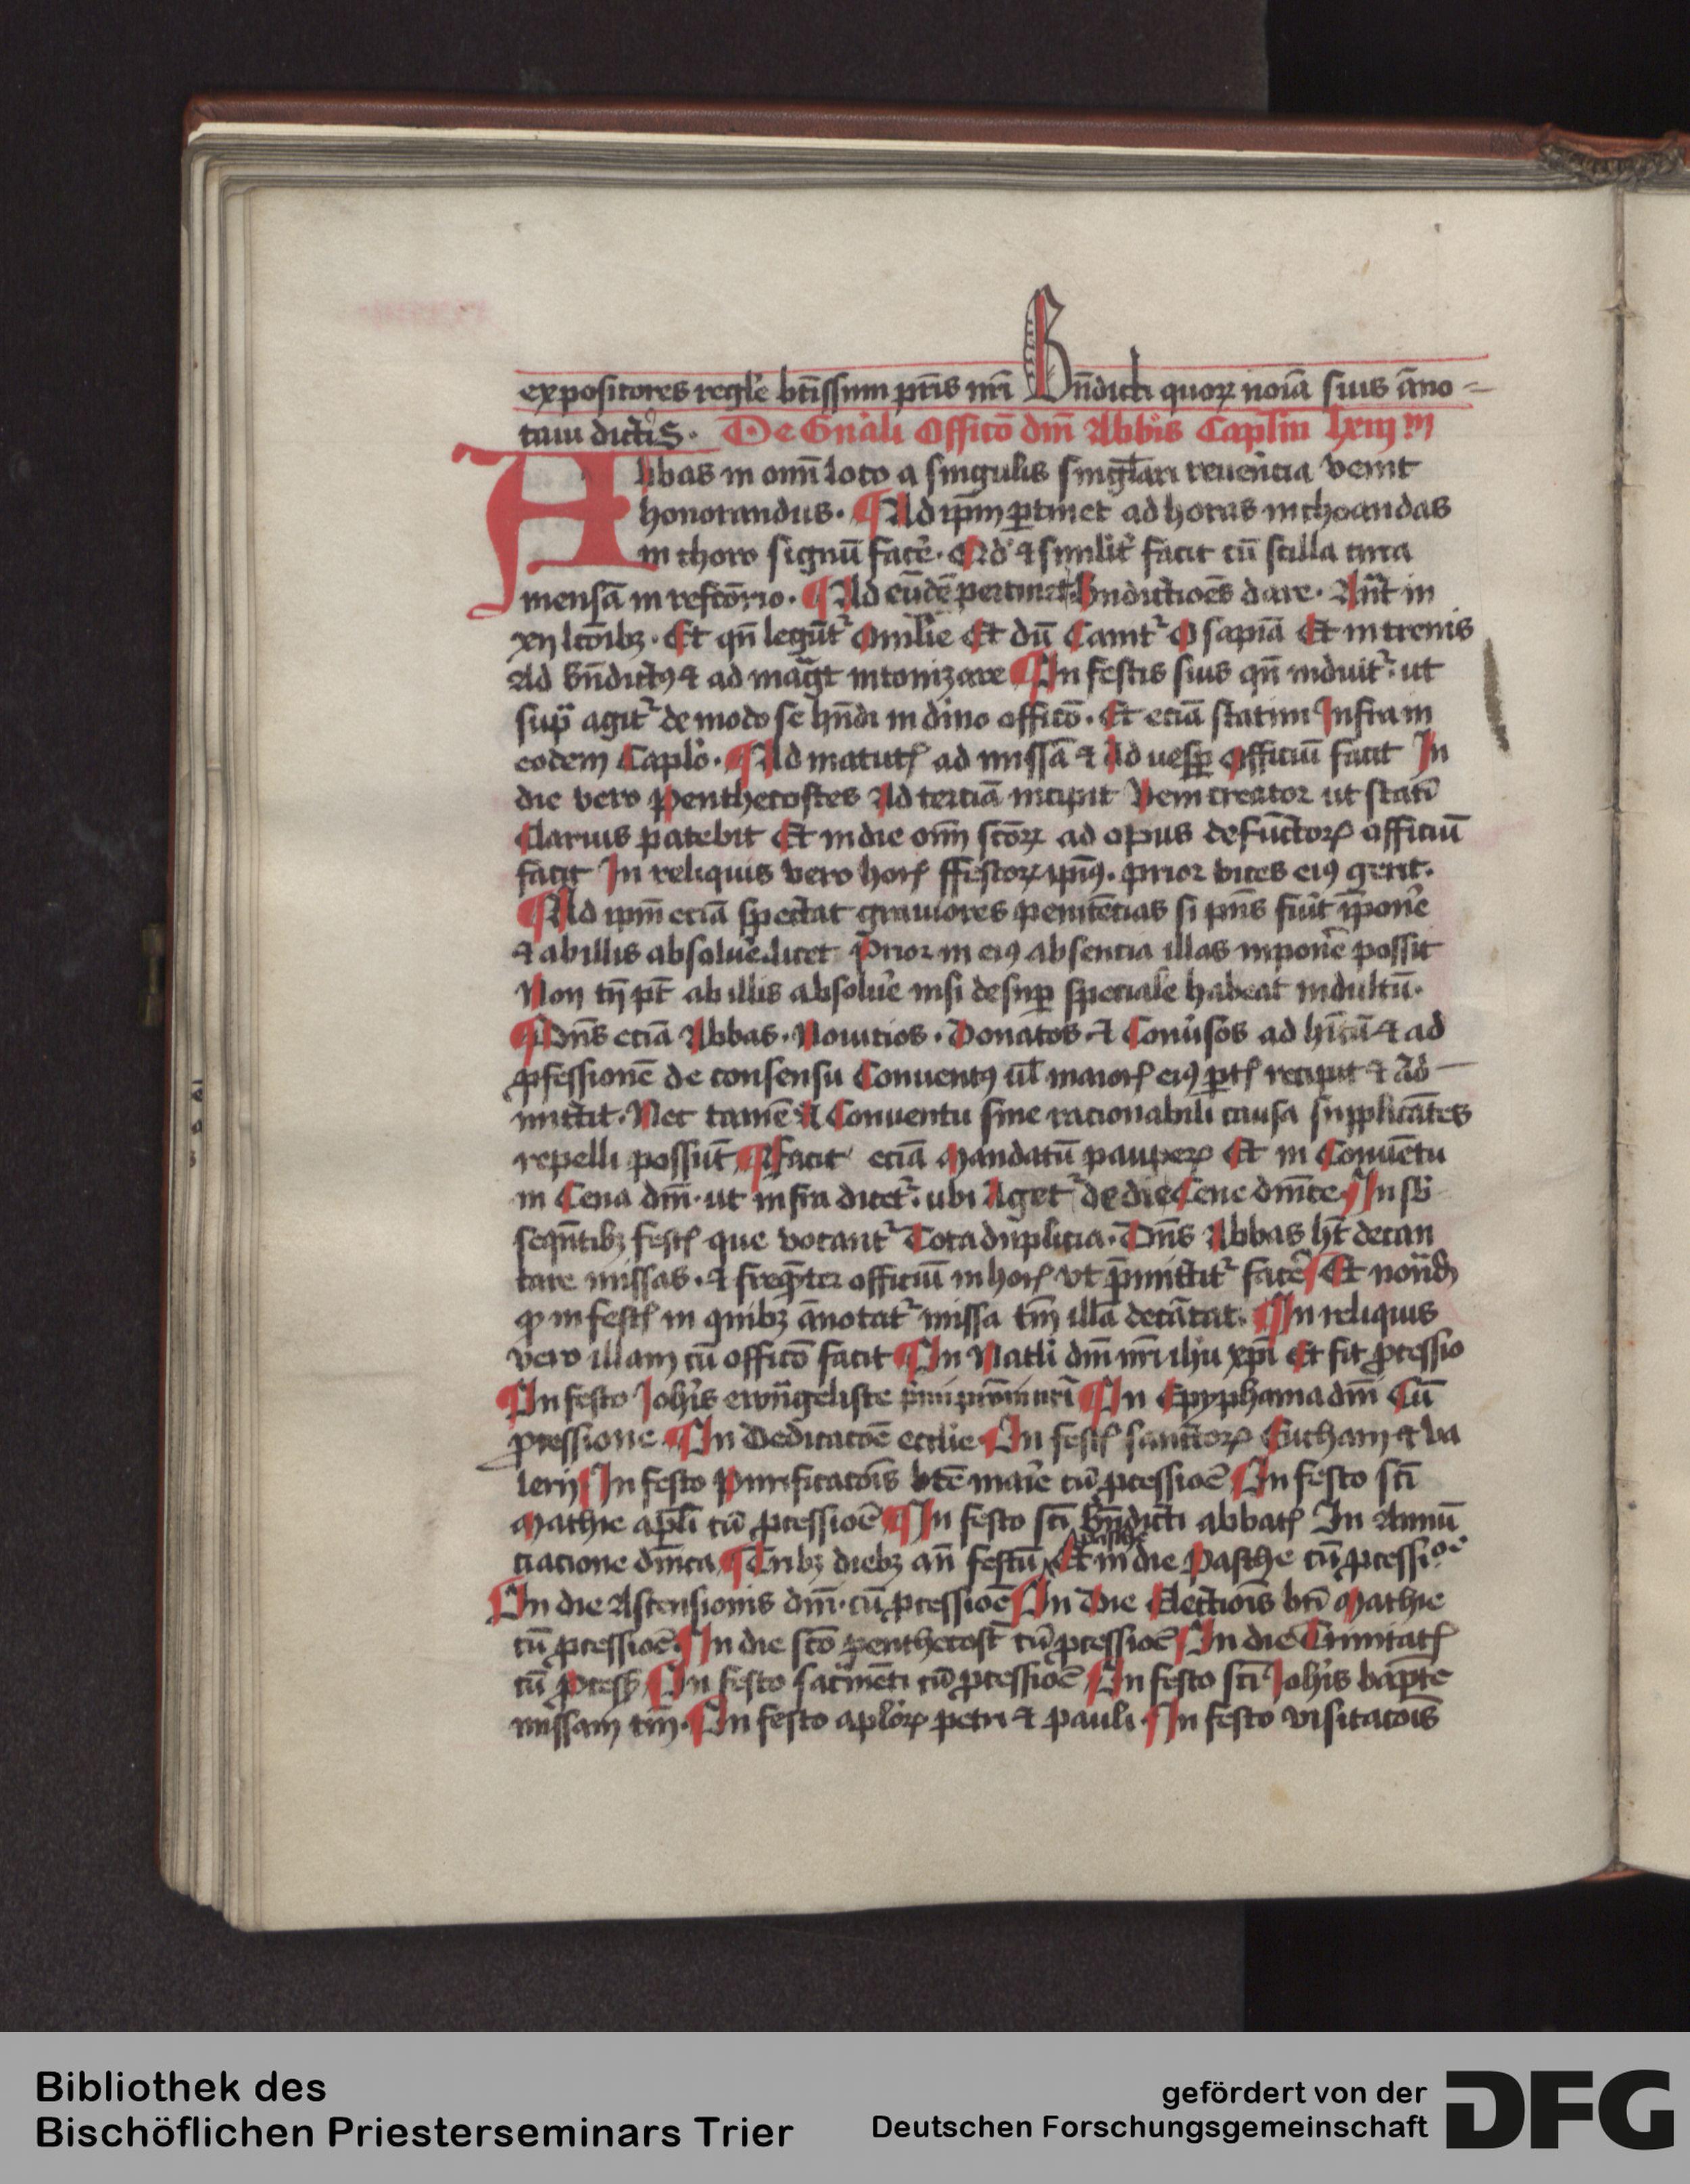 expositores regl̄e btīssimi pr̄is nr̄i Bn̄dicti quoꝝ noīa suis āno =
taui dictis. De Gn̄ali Officō dn̄i Abbīs Caplm̄ lxiij m
Abbas in omī loco a singulis singl̄ari reuen̄cia venit
honorandus. Ad ip̄m ꝑtinet ad horas inchoandas
in choro signū facē. Id ⁊ simlit̄ facit cū scilla circa
mensā in refcōrio. Ad eūdē pertinet Bn̄dictioēs dare. Ant̄ in
xij lcōibꝫ. Et qn̄ legūt᷑ Omīlie Et dū Cant᷑ O sapiā Et in trenis
Ad Bn̄dictꝰ ⁊ ad māgt intonizare In festis suis qn̄ induit᷑. ut
sup̄ agit᷑ de modo se hn̄di in dīno officō. Et eciā statim Infra in
eodem Caplō. Ad matut̄ ad missā ⁊ Ad vesꝑ officiū facit In
die vero Penthecostes Ad terciā incipit Veni creator ut statī
Clarius patebit Et in die oīm scōꝝ ad opus defūctoꝝ officiū
facit In reliquis vero hoꝝ ffestoꝝ ip̄iꝰ. prior vices eiꝰ gerit.
Ad ip̄m eciā spectat grauiores penitēcias si pn̄s fuīt ip̄onē
⁊ ab illis absoluē. licet Prior in eiꝰ absencia illas inponē possit
Non tn̄ pt̄ ab illis absoluē nisi desuꝑ speciale habeat indultū.
Dn̄s eciā Abbas. Nouicios. Donatos. ⁊ Conūsos ad hītū ⁊ ad
ꝓfessionē de consensu Conuentꝰ ul̄ maioꝝ eiꝰ ꝑt̄ recipit ⁊ ad
mittit. Nec tamē A Conuentu sine racionabili causa supplicātes
repelli possūt Facit eciā Mandatū pauperꝝ Et in Conuētu
in Cena dn̄i. ut infra dicet᷑. ubi Aget᷑ de die Cene dn̄ice In sb̄
seqn̄tibꝫ fest̄ que vocant᷑ Tota duplicia. Dn̄s Abbas ht̄ decan
tare missas. ⁊ freqn̄ter officiū in hoꝝ vt p̄mittit᷑ facē Et notand̄
ꝙ in fest̄ in quibꝫ ānotat᷑ missa tm̄ illā decātat. In reliquis
vero illam cū officō facit In Natli dn̄i nr̄i ihū xp̄i Et fit ꝓcessio
In festo Joh̄is ewāgeliste In Epyphania dn̄i Cū
ꝓcessione In Dedicatōe eccl̄ie In fest̄ sanctoꝝ Eucharij ⁊ va
lerij In festo Purificatoīs bte marīe cū ꝓcessioē In festo scī
Mathie apl̄i cū ꝓcessioē In festo scī Bn̄dicti abbat̄ In Annū
ciacione dn̄ica Tribꝫ diebꝫ an̄ festū pasche Et in die Pasche cū ꝓcessioē
In die Ascensionis dn̄i. cū ꝓcessioē In Die Electiōis bt̄i Mathie
cū ꝓcessioē In die scō penthecost̄ cū ꝓcessioē In die Trinitat̄
cū ꝓcess̄ In festo sacmēti cū ꝓcessioē In festo scī Joh̄is bapt̄e
missam tm̄. In festo aplōꝝ petri ⁊ pauli. In festo visitatōis
Bibliothek des
Bischöflichen Priesterseminars Trier
gefördert von der
Deutschen Forschungsgemeinschaft
DFG